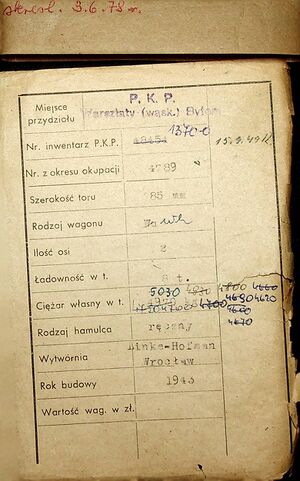 skreśl. 3.6.73 r.
Miejsce przydziału P. K. P.
Warsztaty (wąsk.) Bytom
Nr. inwentarz P.K.P. 1370-0 15.9.49 r.
Nr. z okresu okupacji 4789
Szerokość toru 85 mm
Rodzaj wagonu
Ilość osi 2
Ładowność w t. 8 t.
Ciężar własny w t. 5030 4800 4660
4700 4690 4620
4660
4670
Rodzaj hamulca ręczny
Wytwórnia Linke-Hofman
Wrocław
Rok budowy 1943
Wartość wag. w zł.